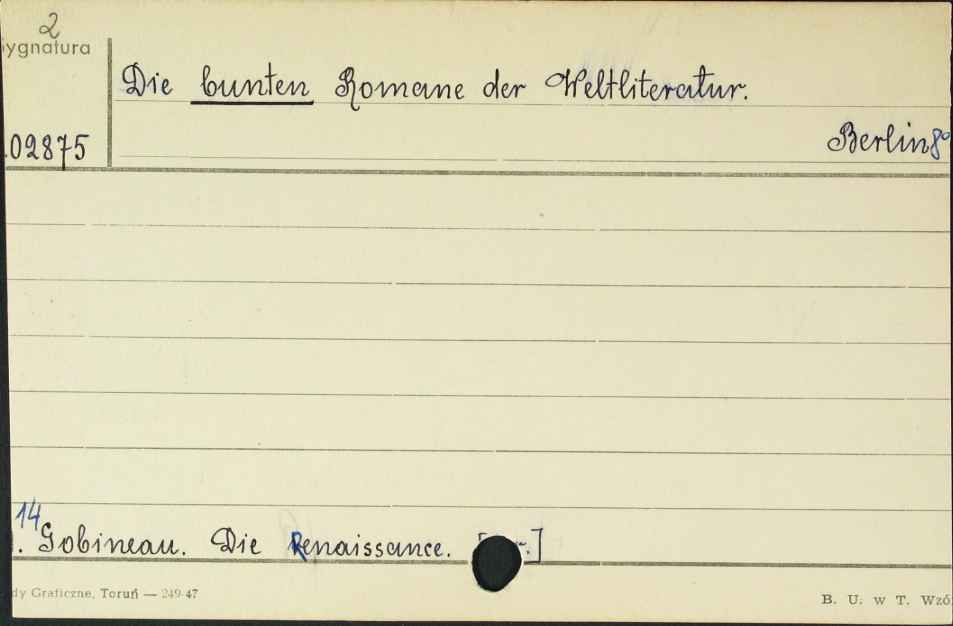 2
ygnatura
Die bunten Romane der Weltliteratur.
02875
Berlin 8°
14
. Gobineau. Die Renaissance. [ .]
dy Graficzne, Toruń — 249-47
B. U. w T. Wzó